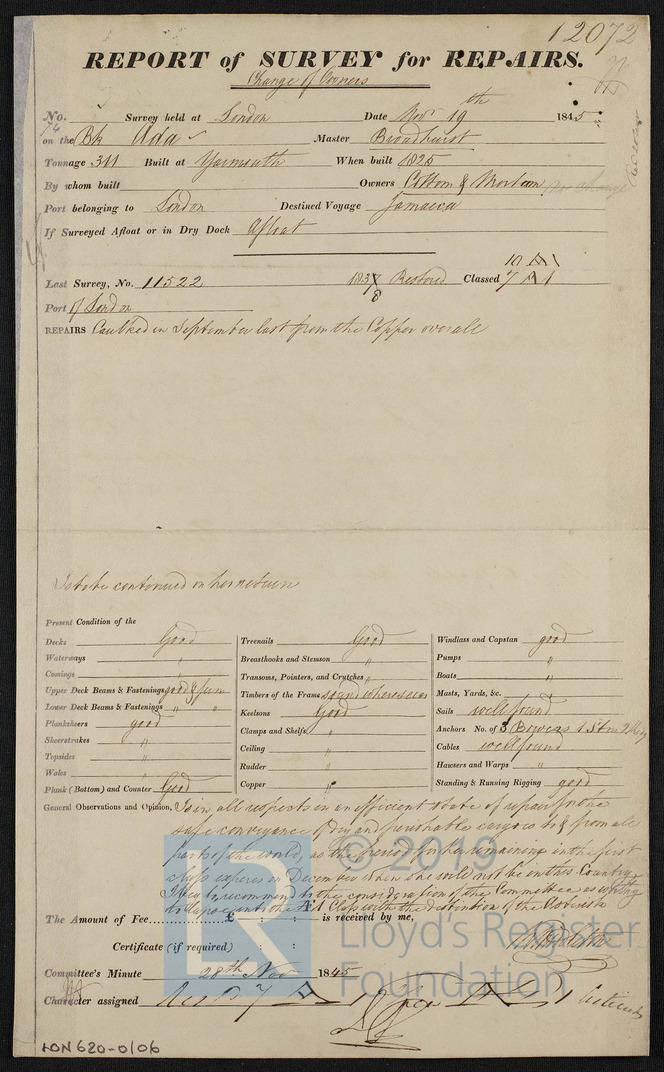 12072
REPORT of SURVEY for REPAIRS.
Change of Owners
No. 74 Survey held at London Date Nov 19th 1845
on the Bk Ada Master Broadhurst
Tonnage 311 Built at Yarmouth When built 1825
By whom built Owners Cottam & Mortown no change
Port belonging to London Destined Voyage Jamaica
If Surveyed Afloat or in Dry Dock Afloat
10 A 1
Last Survey, No. 11522 1837 Restored Classed 7 A 1
8
Port of London
REPAIRS Caulked in September last from the Copper overall
Is to be continued on her return
Present Condition of the
Decks Good
Waterways "
Comings "
Upper Deck Beams & Fastenings good & firm
Lower Deck Beams & Fastenings " "
Planksheers good
Sheerstrakes "
Topsides "
Wales "
Plank (Bottom) and Counter Good
Treenails Good
Breasthooks and Stemson "
Transoms, Pointers, and Crutches "
Timbers of the Frame sound where seen
Keelsons Good
Clamps and Shelfs "
Ceiling "
Rudder "
Copper "
Windlass and Capstan good
Pumps "
Boats "
Masts, Yards, &c. "
Sails well found
Anchors No. of 3 Bowers 1 Strm 2 Keg
Cables well found
Hawsers and Warps "
Standing & Running Rigging good
General Observations and Opinion, Is in all respects in an efficient state of repair for the
safe conveyance of dry and perishable cargoes to & from all
parts of the world, as the period for her remaining in the first
class expires in December when she will not be in this Country,
I beg to recommend to the consideration of the Committee as
to lapse into the Æ 1 Class with the distinction of the Asterisk
The Amount of Fee £ : : is received by me,
Certificate (if required) : :
Committee's Minute 28th Nov 1845
Character assigned
LON620-0106
© 2019
Lloyd's Register
Foundation
LR